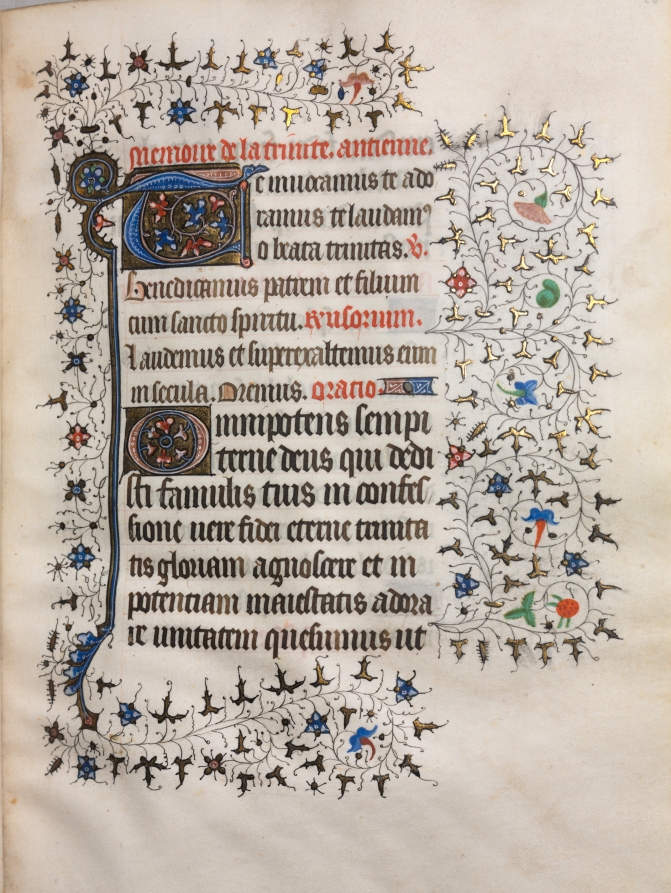 Memoire de la trinite. antienne.
Te inuocamus te ado
ramus te laudamꝰ
o beata trinitas. V.
Benedicamus patrem et filium
cum sancto spiritu. Responsorium.
Laudemus et superexaltemus eum
in secula. Oremus. Oratio.
Omnipotens sempi
terne deus qui dedi
sti famulis tuis in confes
sione uere fidei eterne trinita
tis gloriam agnoscere et in
potentiam maiestatis adora
re unitatem quesumus ut